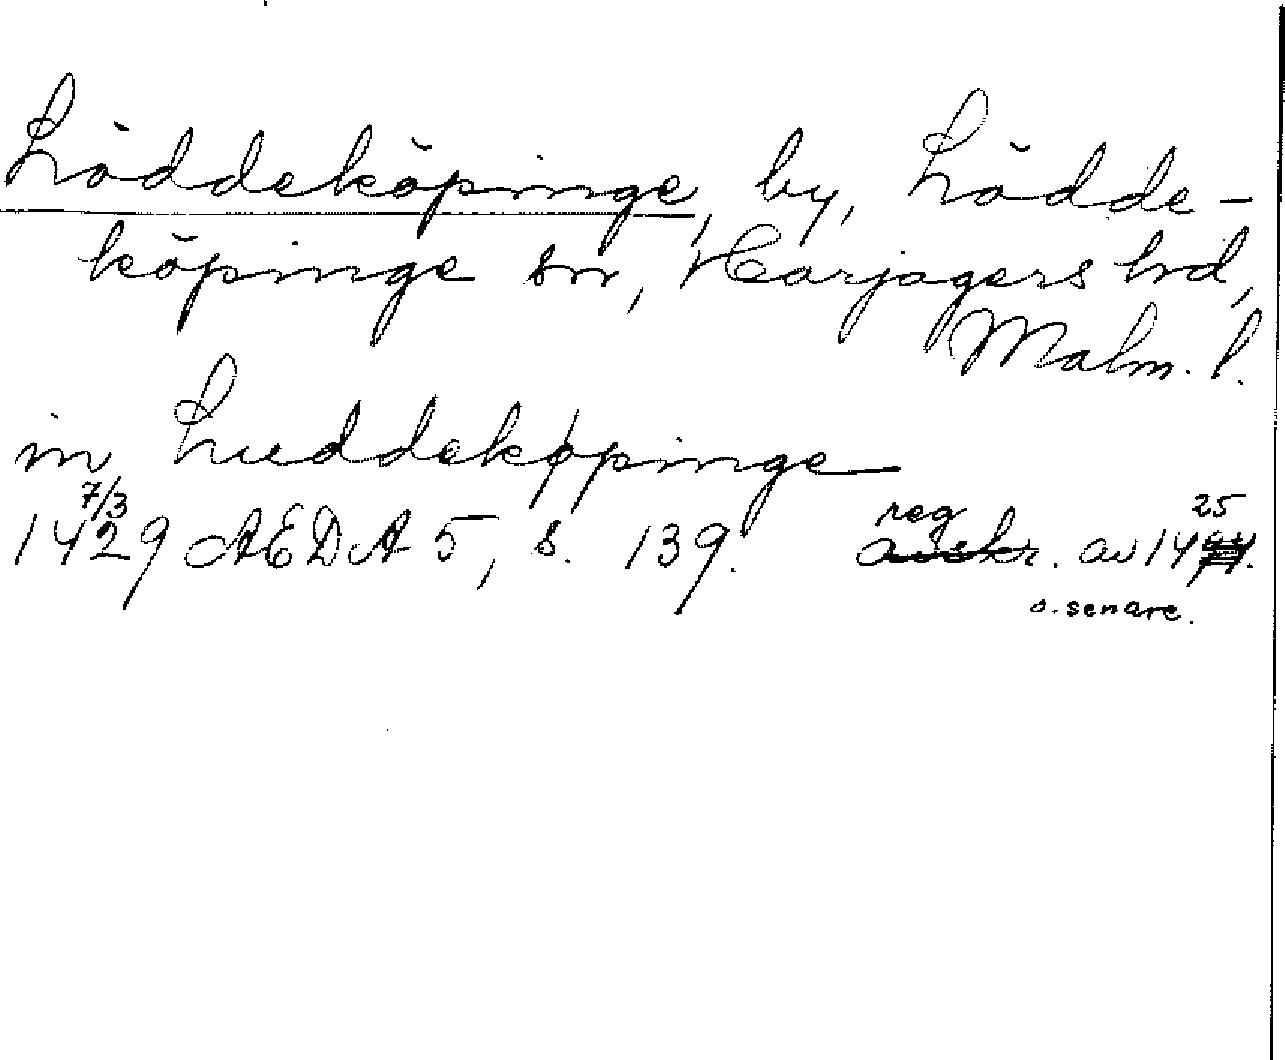 Löddeköpinge, by, Lödde-
köpinge sn, Harjagers hrd,
Malm. l.
in Luddekøpinge
7/3 reg 25
1429 AEDA 5, s. 139. avskr. av 1494.
o. senare.